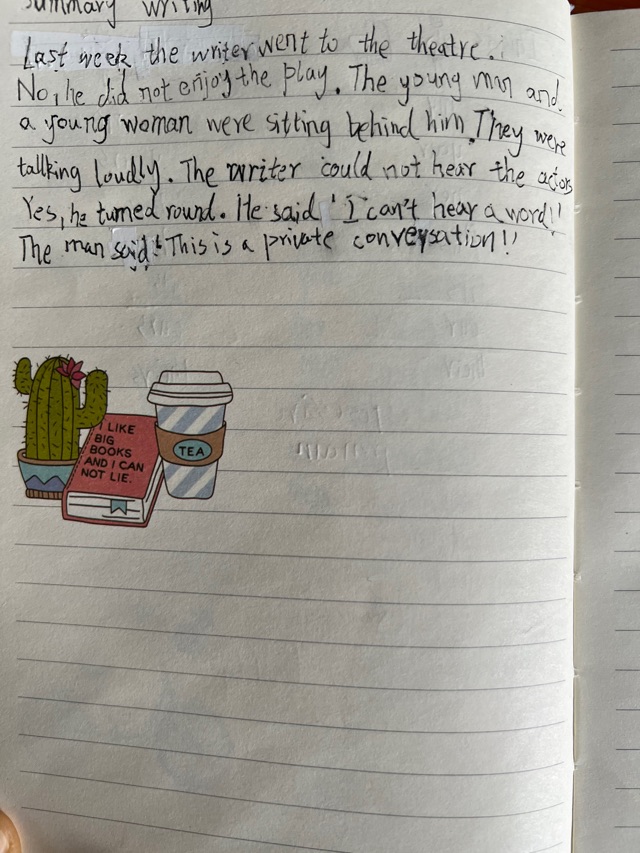 Summary writing
Last week the writer went to the theatre.
No, he did not enjoy the play. The young man and
a young woman were sitting behind him. They were
tallking loudly. The writer could not hear the actors
Yes, he turned round. He said 'I can't hear a word!'
The man said 'This is a private conveysation!'
I LIKE
BIG
BOOKS
AND I CAN
NOT LIE.
TEA